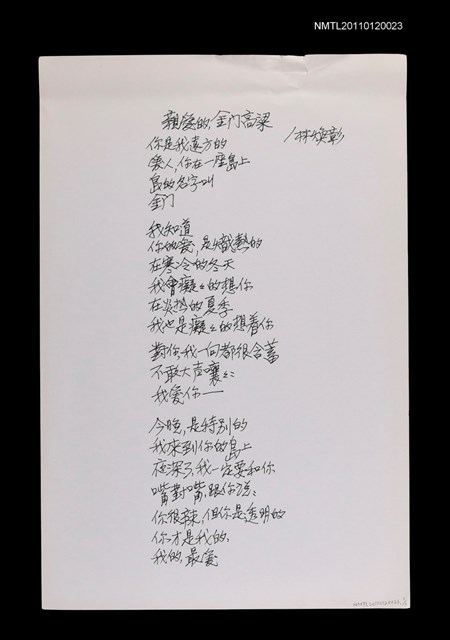 NMTL20110120023
親愛的,金门高梁
/林煥彰
你是我遠方的
愛人,你在一座島上
島的名字叫
金门

我知道
你的愛,是熾熱的
在寒冷的冬天
我會癡々的想你
在炎热的夏季
我也是癡々的想着你

對你,我一向都很含蓄
不敢大声嚷々:
我爱你——

今晚,是特别的
我來到你的島上
夜深了,我一定要和你
嘴對嘴,跟你说:
你很辣,但你是透明的
你才是我的,
我的,最愛
NMTL20110120023